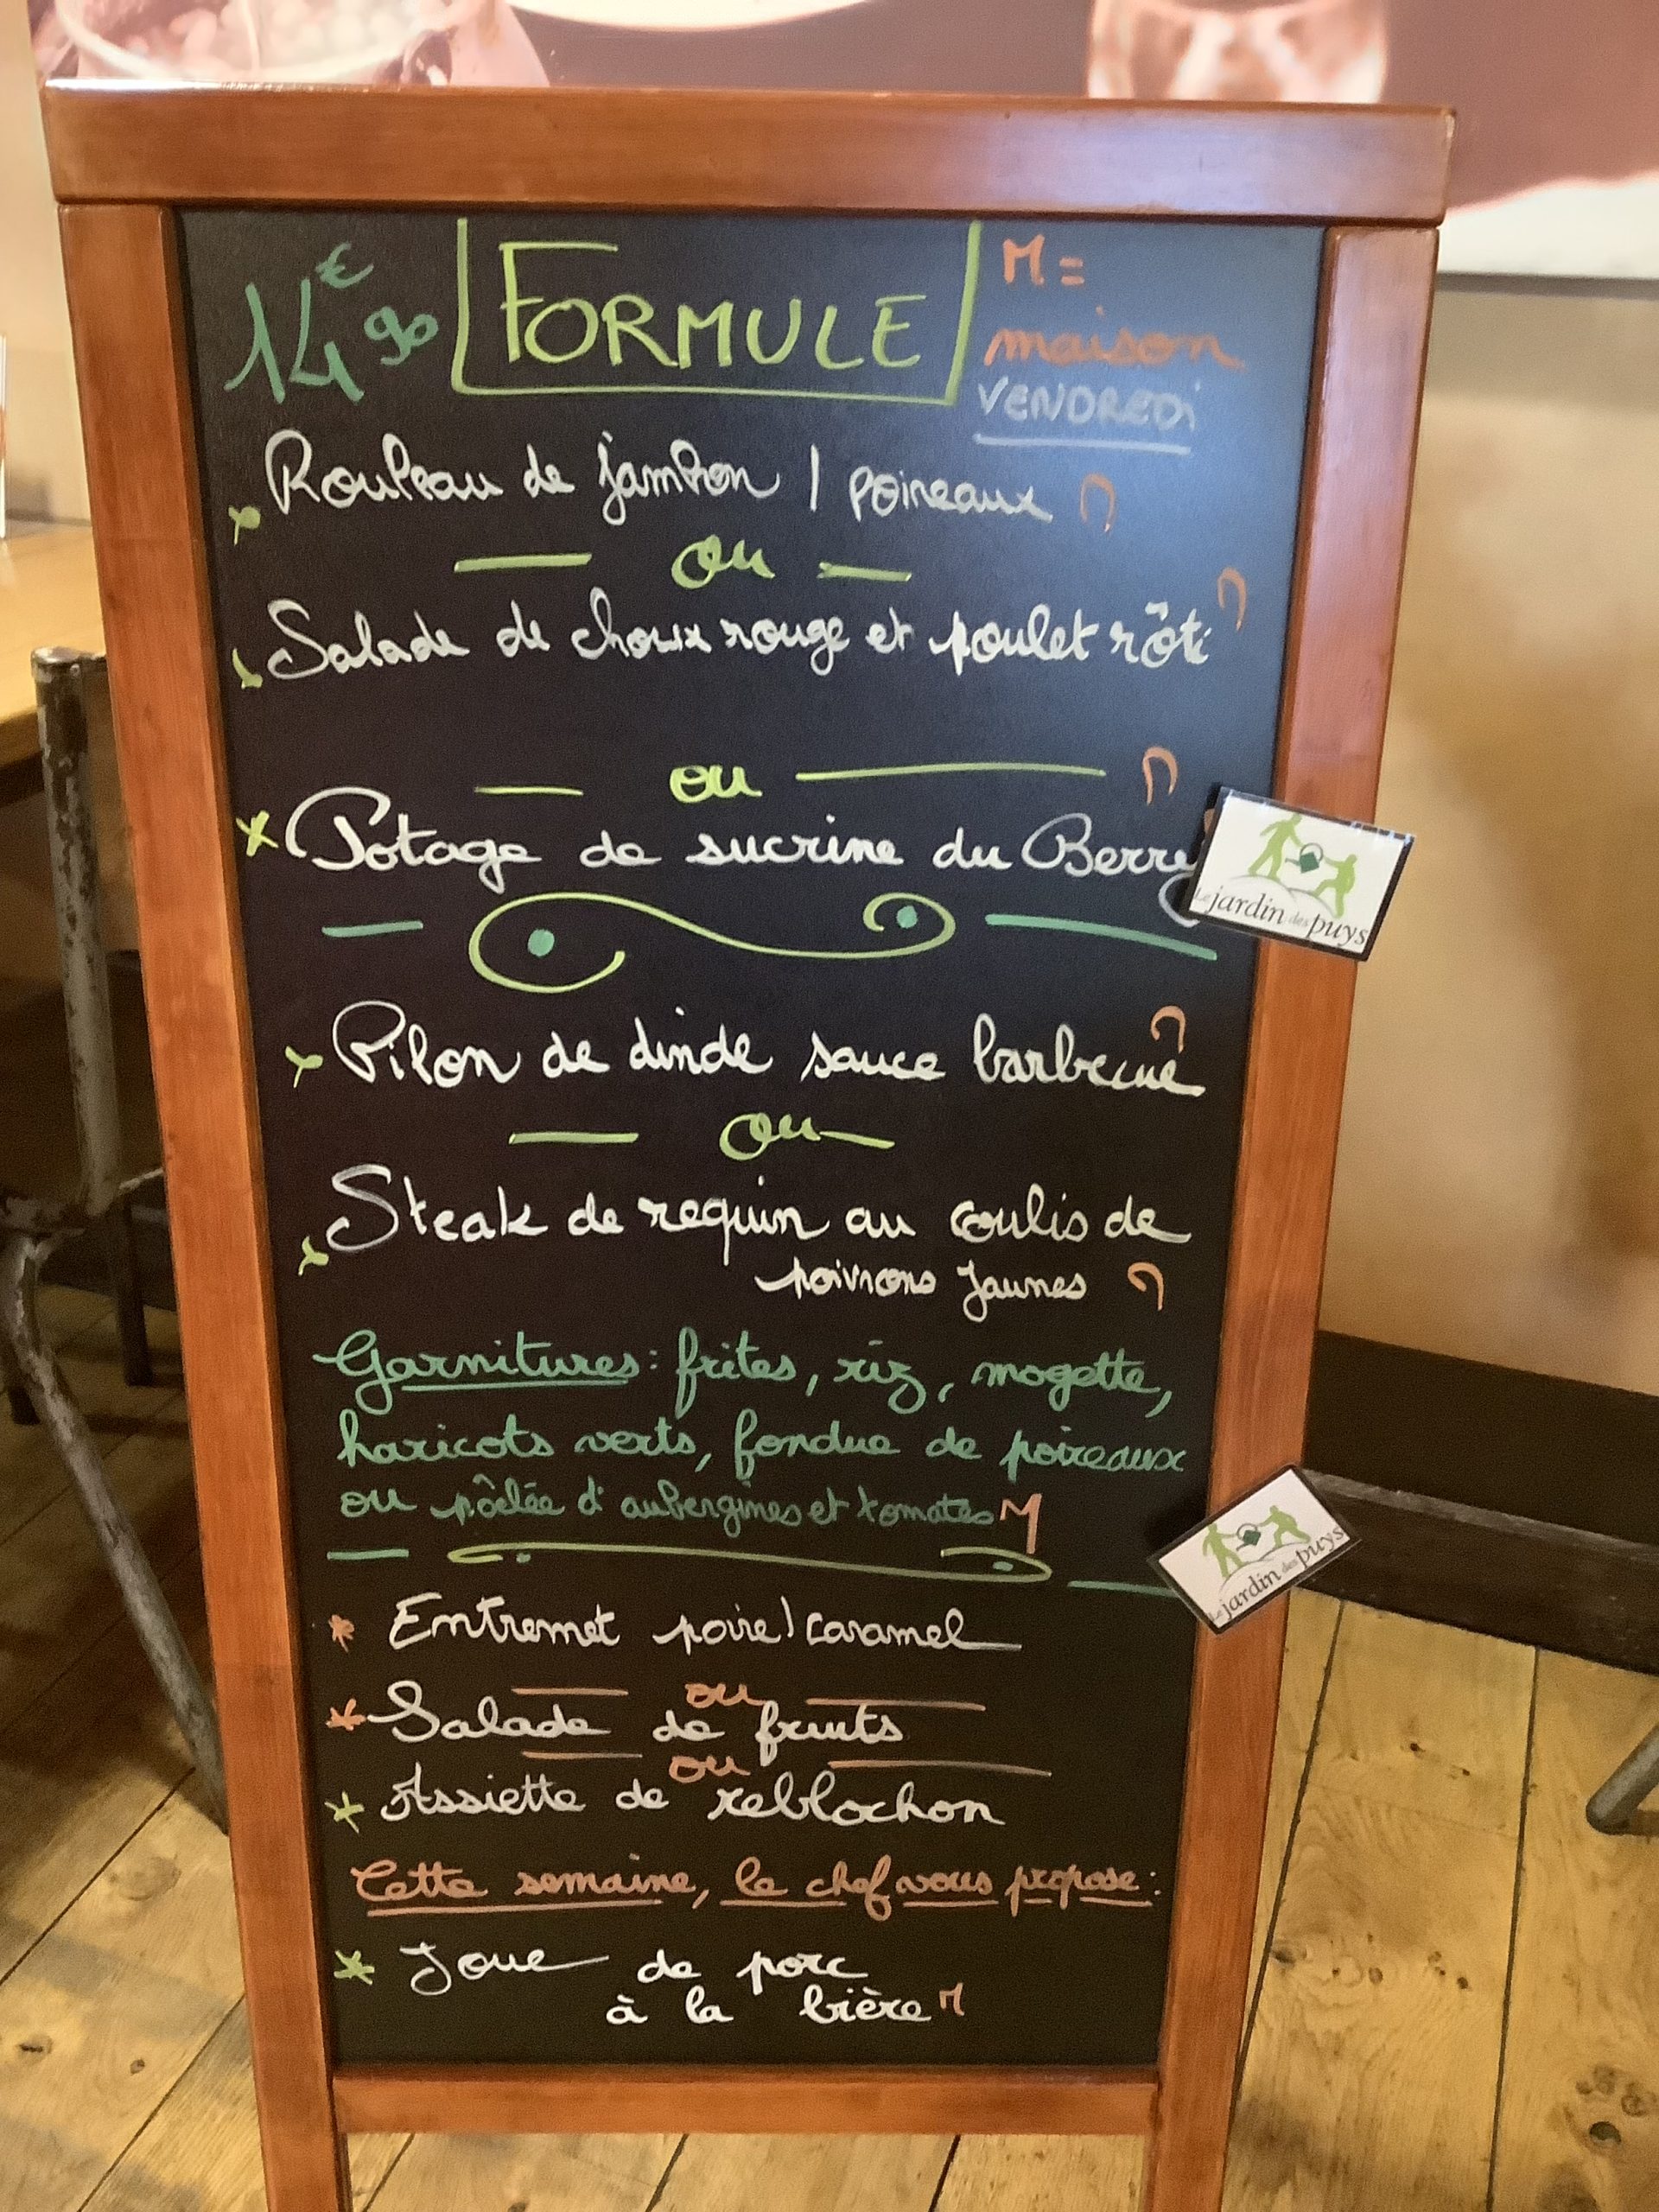 14€90 FORMULE M =
maison
VENDREDi
Rouleau de jambon / poireaux M
ou
Salade de choux rouge et poulet rôti M
ou M
Potage de sucrine du Berry
Le jardin des puys
Pilon de dinde sauce barbecue M
ou
Steak de requin au coulis de
poivrons jaunes M
Garnitures : frites, riz, mogette,
haricots verts, fondue de poireaux
ou pôelée d'aubergines et tomates M
Le jardin des puys
Entremet poire/caramel
ou
Salade de fruits
ou
Assiette de reblochon
Cette semaine, le chef vous propose :
Joue de porc
à la bière M